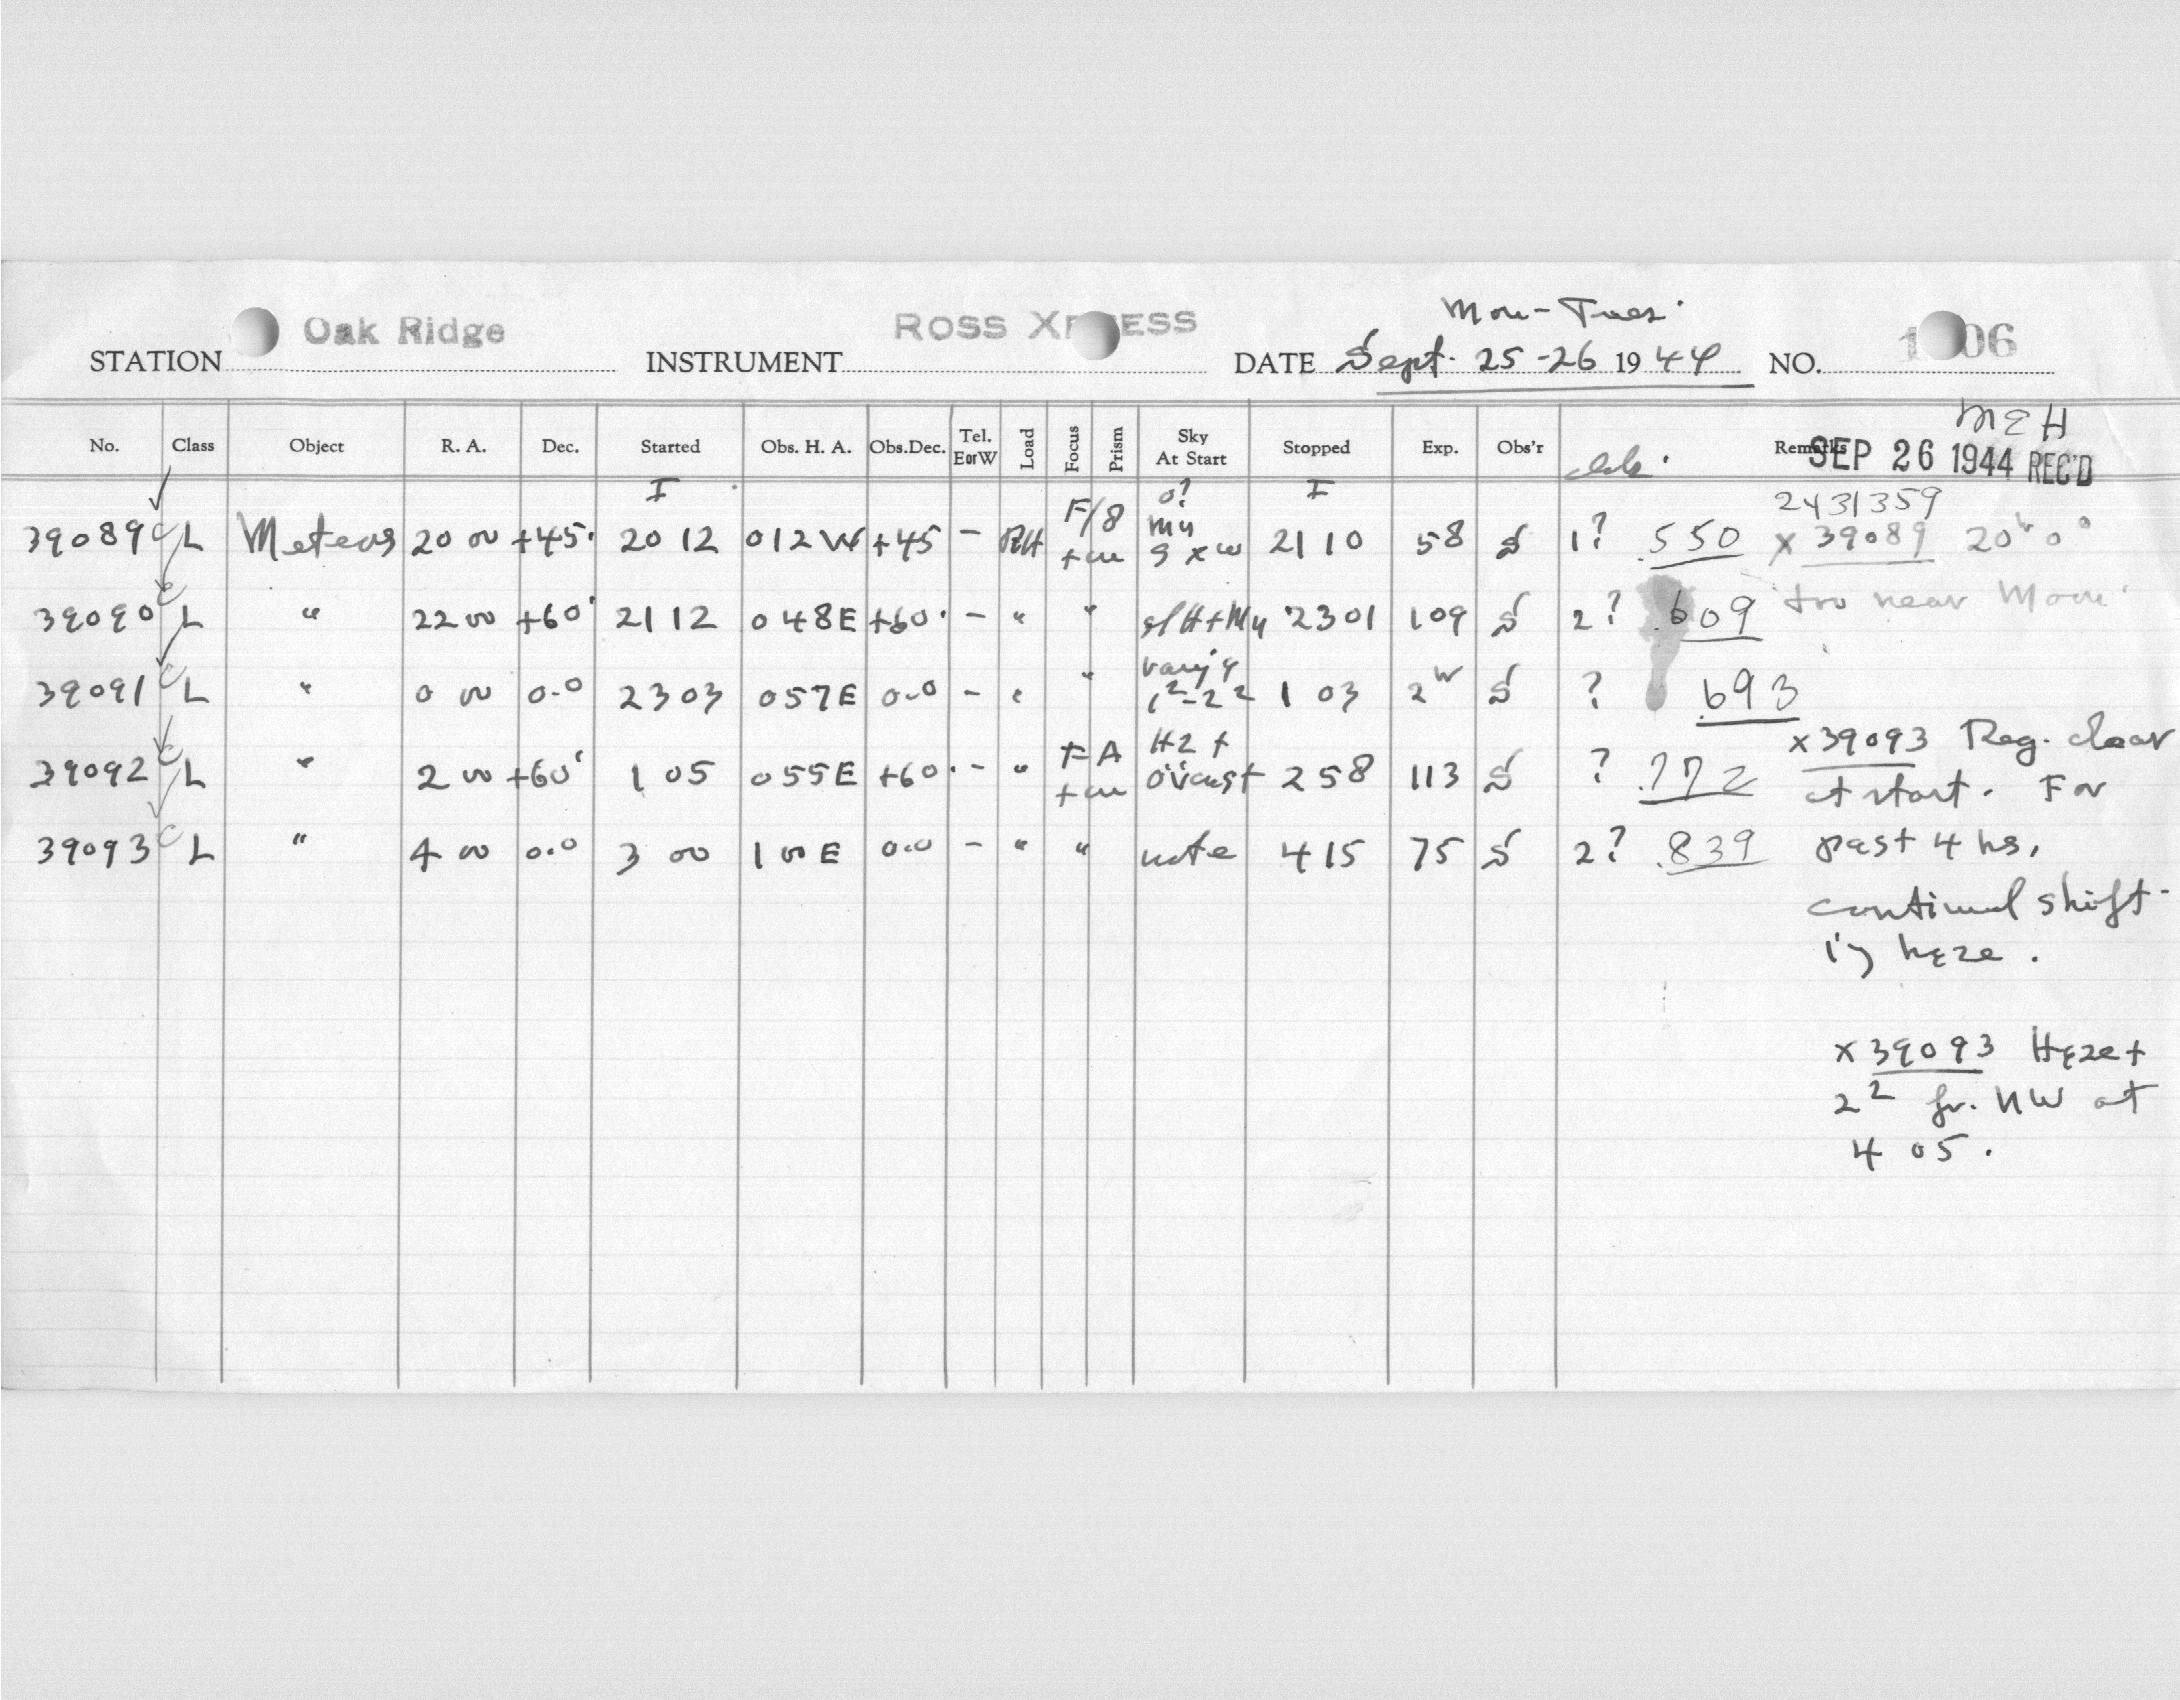 Mon-Tues.
STATION Oak Ridge INSTRUMENT ROSS DATE Sept. 25-26 1944 NO.
MEH
No. Class Object R. A. Dec. Started Obs. H. A. Obs.Dec. Tel. E or W Load Focus Prism Sky At Start Stopped Exp. Obs'r Remarks
SEP 26 1944 REC'D
2431359
39089 C L Meteors 20 00 +45° 20 12 0 12 W +45 - RH F/8 21 10 58 S 1? .550 x 39089 20h 0°
39090 C L " 22 00 +60° 21 12 0 48 E +60° - " " sl H + My 23 01 109 S 2? .609 too near Moon.
39091 C L " 0 00 0.0 23 03 0 57 E 0.0 - " " 1²-2² 1 03 2 S ? .693
39092 C L " 2 00 +60° 1 05 0 55 E +60° - " FA Hz + ovcast 2 58 113 S ? .772
39093 C L " 4 00 0.0 3 00 1 00 E 0.0 - " " note 4 15 75 S 2? .839
x 39093 Reg. clear
at start. For
past 4 hs,
continual shift-
ing haze.
x 39093 Haze +
2² fr. NW at
4 05.